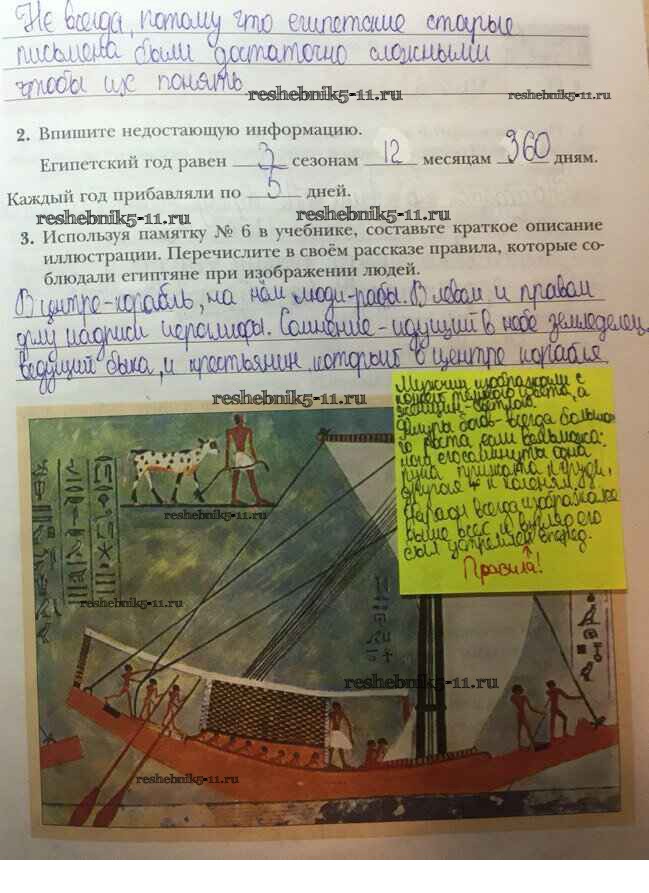 Не всегда, потому что египетские старые
письмена были достаточно сложными
чтобы их понять
reshebnik5-11.ru reshebnik5-11.ru
2. Впишите недостающую информацию.
Египетский год равен 3 сезонам 12 месяцам 360 дням.
Каждый год прибавляли по 5 дней.
reshebnik5-11.ru reshebnik5-11.ru
3. Используя памятку № 6 в учебнике, составьте краткое описание
иллюстрации. Перечислите в своём рассказе правила, которые со-
блюдали египтяне при изображении людей.
В центре-корабль, на нём люди-рабы. В левом и правом
углу надписи иероглифы. Сомнение - идущий в небе земледелец,
ведущий быка, и крестьянин, который в центре корабля
reshebnik5-11.ru
Мужчин изображали с
кожей тёмного цвета, а
женщин-светлого.
фигуры богов- всегда большо-
го роста, если вельможа:
одна
рука прижата к груди,
другая к коленям.
Фараон всегда изображался
выше всех и взгляд его
был устремлён вперед.
Правила!
reshebnik5-11.ru
reshebnik5-11.ru
reshebnik5-11.ru
reshebnik5-11.ru